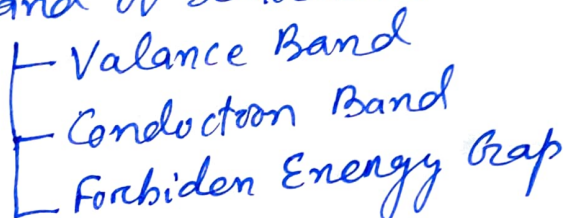 Valance Band
Conduction Band
Forbiden Energy Gap